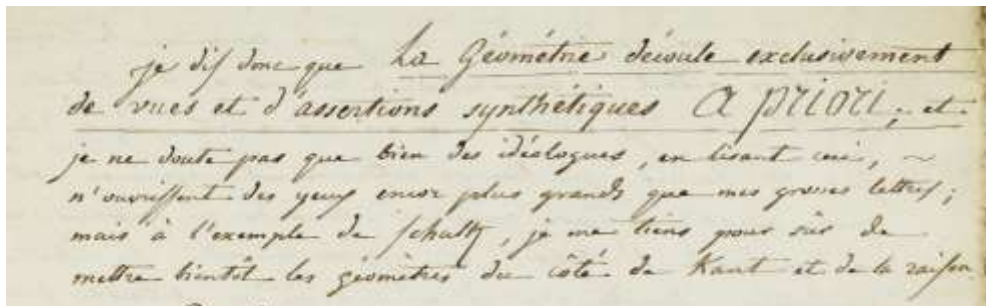 je dis donc que La Géométrie découle exclusivement
de vues et d'assertions synthétiques a priori; et
je ne doute pas que bien des idéologues, en lisant ceci, ~
n'ouvrissent des yeux encor plus grands que mes grosses lettres;
mais à l'exemple de Schultz, je me tiens pour sûr de
mettre bientôt les géomètres du côté de Kant et de la raison